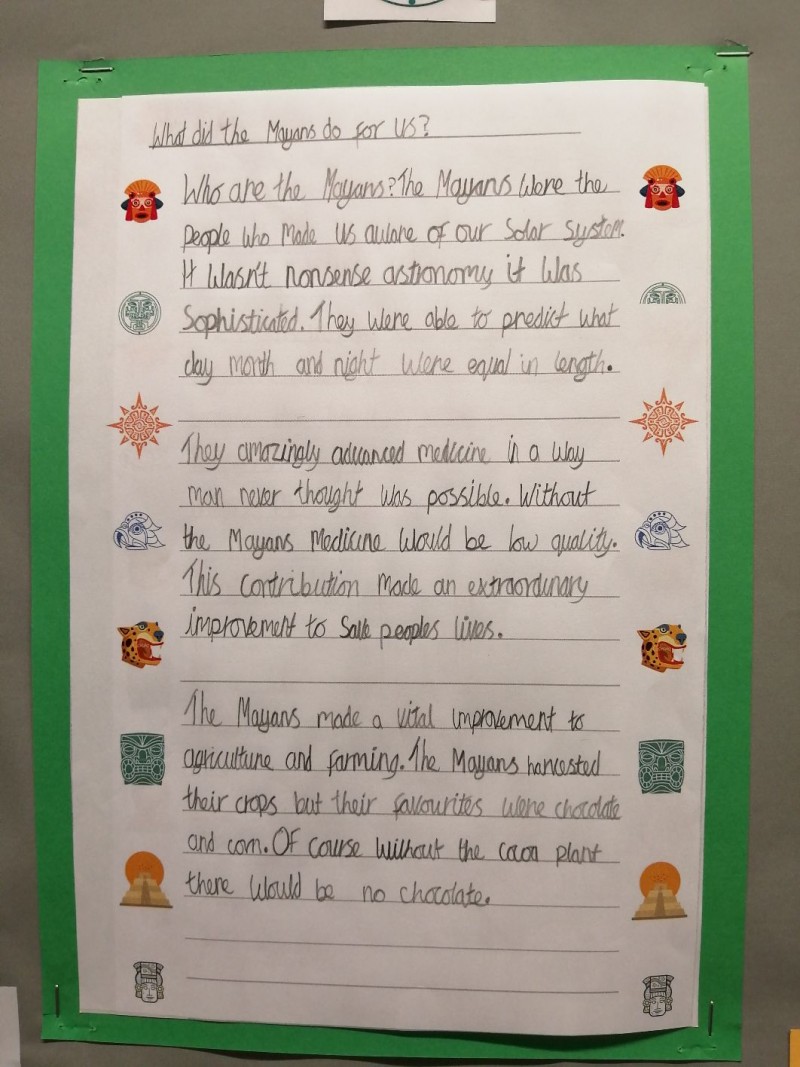 What did the Mayans do for us?
Who are the Mayans? The Mayans were the
people who made us aware of our Solar System.
It wasn't nonsense astronomy it was
Sophisticated. They were able to predict what
day month and night were equal in length.
They amazingly advanced medicine in a way
man never thought was possible. Without
the Mayans Medicine would be low quality.
This contribution made an extraordinary
improvement to save peoples lives.
The Mayans made a vital improvement to
agriculture and farming. The Mayans harvested
their crops but their favourites were chocolate
and corn. Of course without the cacoa plant
there would be no chocolate.